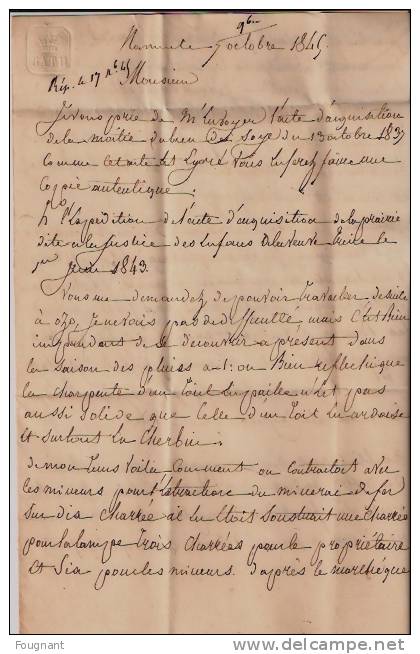 9bre
Namur le 7 octobre 1845
Rép. le 17 9bre 45
Monsieur
Je vous prie de m'Envoyer l'acte d'acquisition
de la moitié du bien de Soye du 13 octobre 183
Comme cet acte Est vous En ferez faire une
Copie autentique.
l'Expédition de l'acte d'acquisition de la prairie
dite a la justice des Enfans de la veuve le
1er Juin 1843.
Vous me demandez de pouvoir travailler de suite
à je ne vois pas de difficulté mais C'Est Bien
de le découvrir a présent dans
la saison des pluies a-t-on Bien reflechi que
la charpente d'un toit En paille n'Est pas
aussi solide que Celle d'un toit En ardoise
Et surtout la
de mon tems voila Comment on Contractoit avec
les mineurs pour l'Extraction du minerai de fer
sur dix Charrée il En Etoit soustrait une Charrée
pour la lampe trois Charrées pour le propriétaire
Et Six pour les mineurs. d'après le marché que
Fougnant
delcampe.net